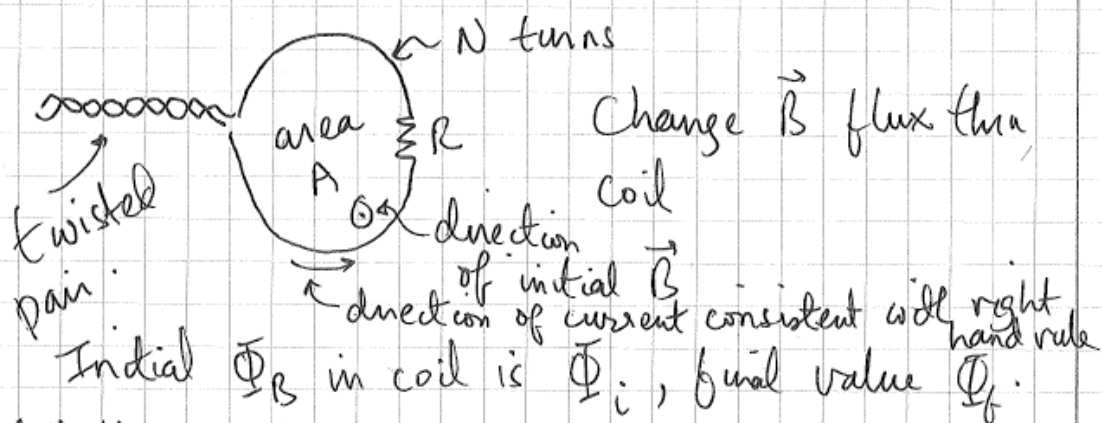 N turns
area
A
R
Change B⃗ flux thru
coil
twisted
pair.
direction
of initial B⃗
direction of current consistent with right
hand rule
Initial Φ_B in coil is Φ_i, final value Φ_f.